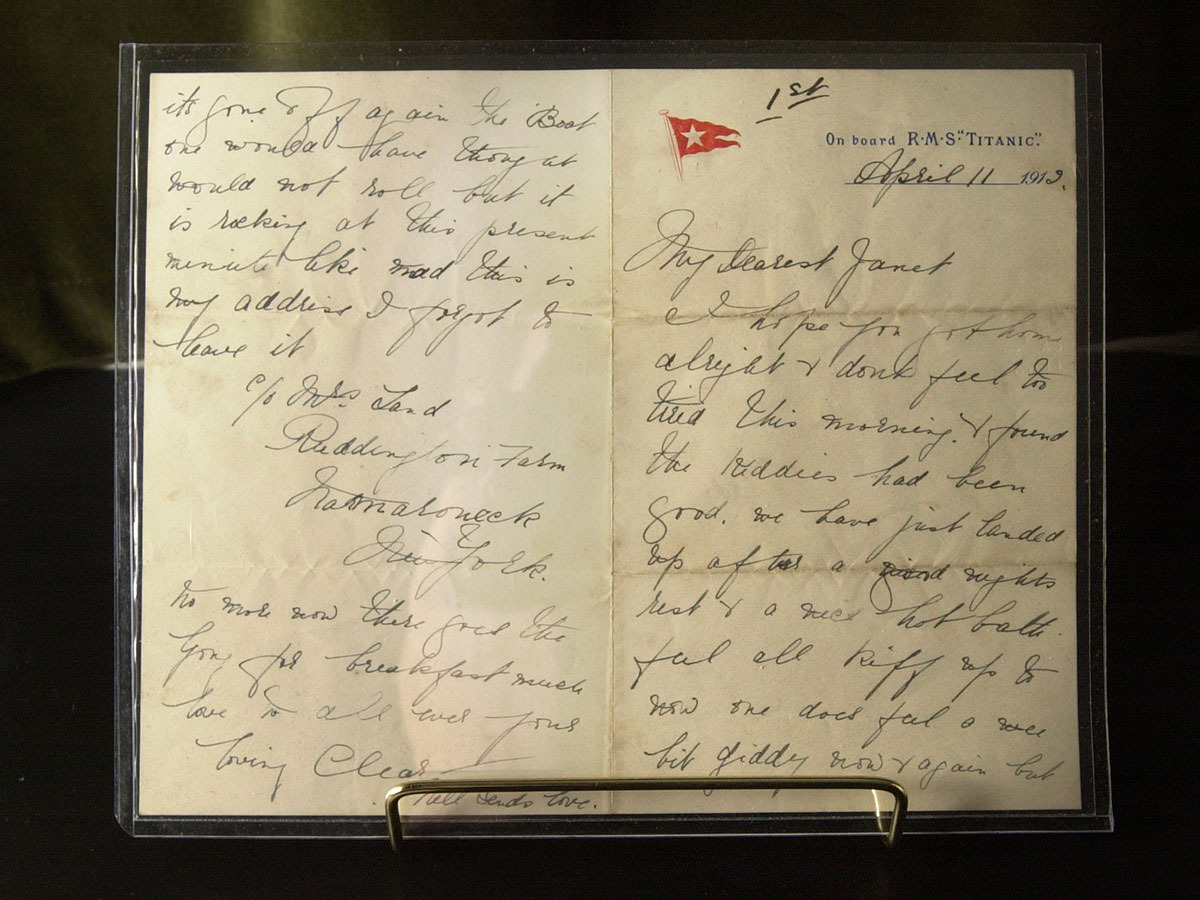 1st
On board R·M·S "TITANIC".
April 11 1912.
My Dearest Janet
I hope you got home
alright & dont feel too
tired this morning. & found
the Kiddies had been
good. we have just landed
up after a good nights
rest & a nice hot bath.
feel all Kiff up to
now one does feel a wee
bit giddy now & again but
its gone off again the Boat
one would have thought
would not roll but it
is rocking at this present
minute like mad this is
my address I forgot to
leave it
c/o Mrs. Land
Reddington Farm
Mamaroneck
New York.
No more now there goes the
Gong for breakfast much
love to all ever your
loving Clear
sends love.